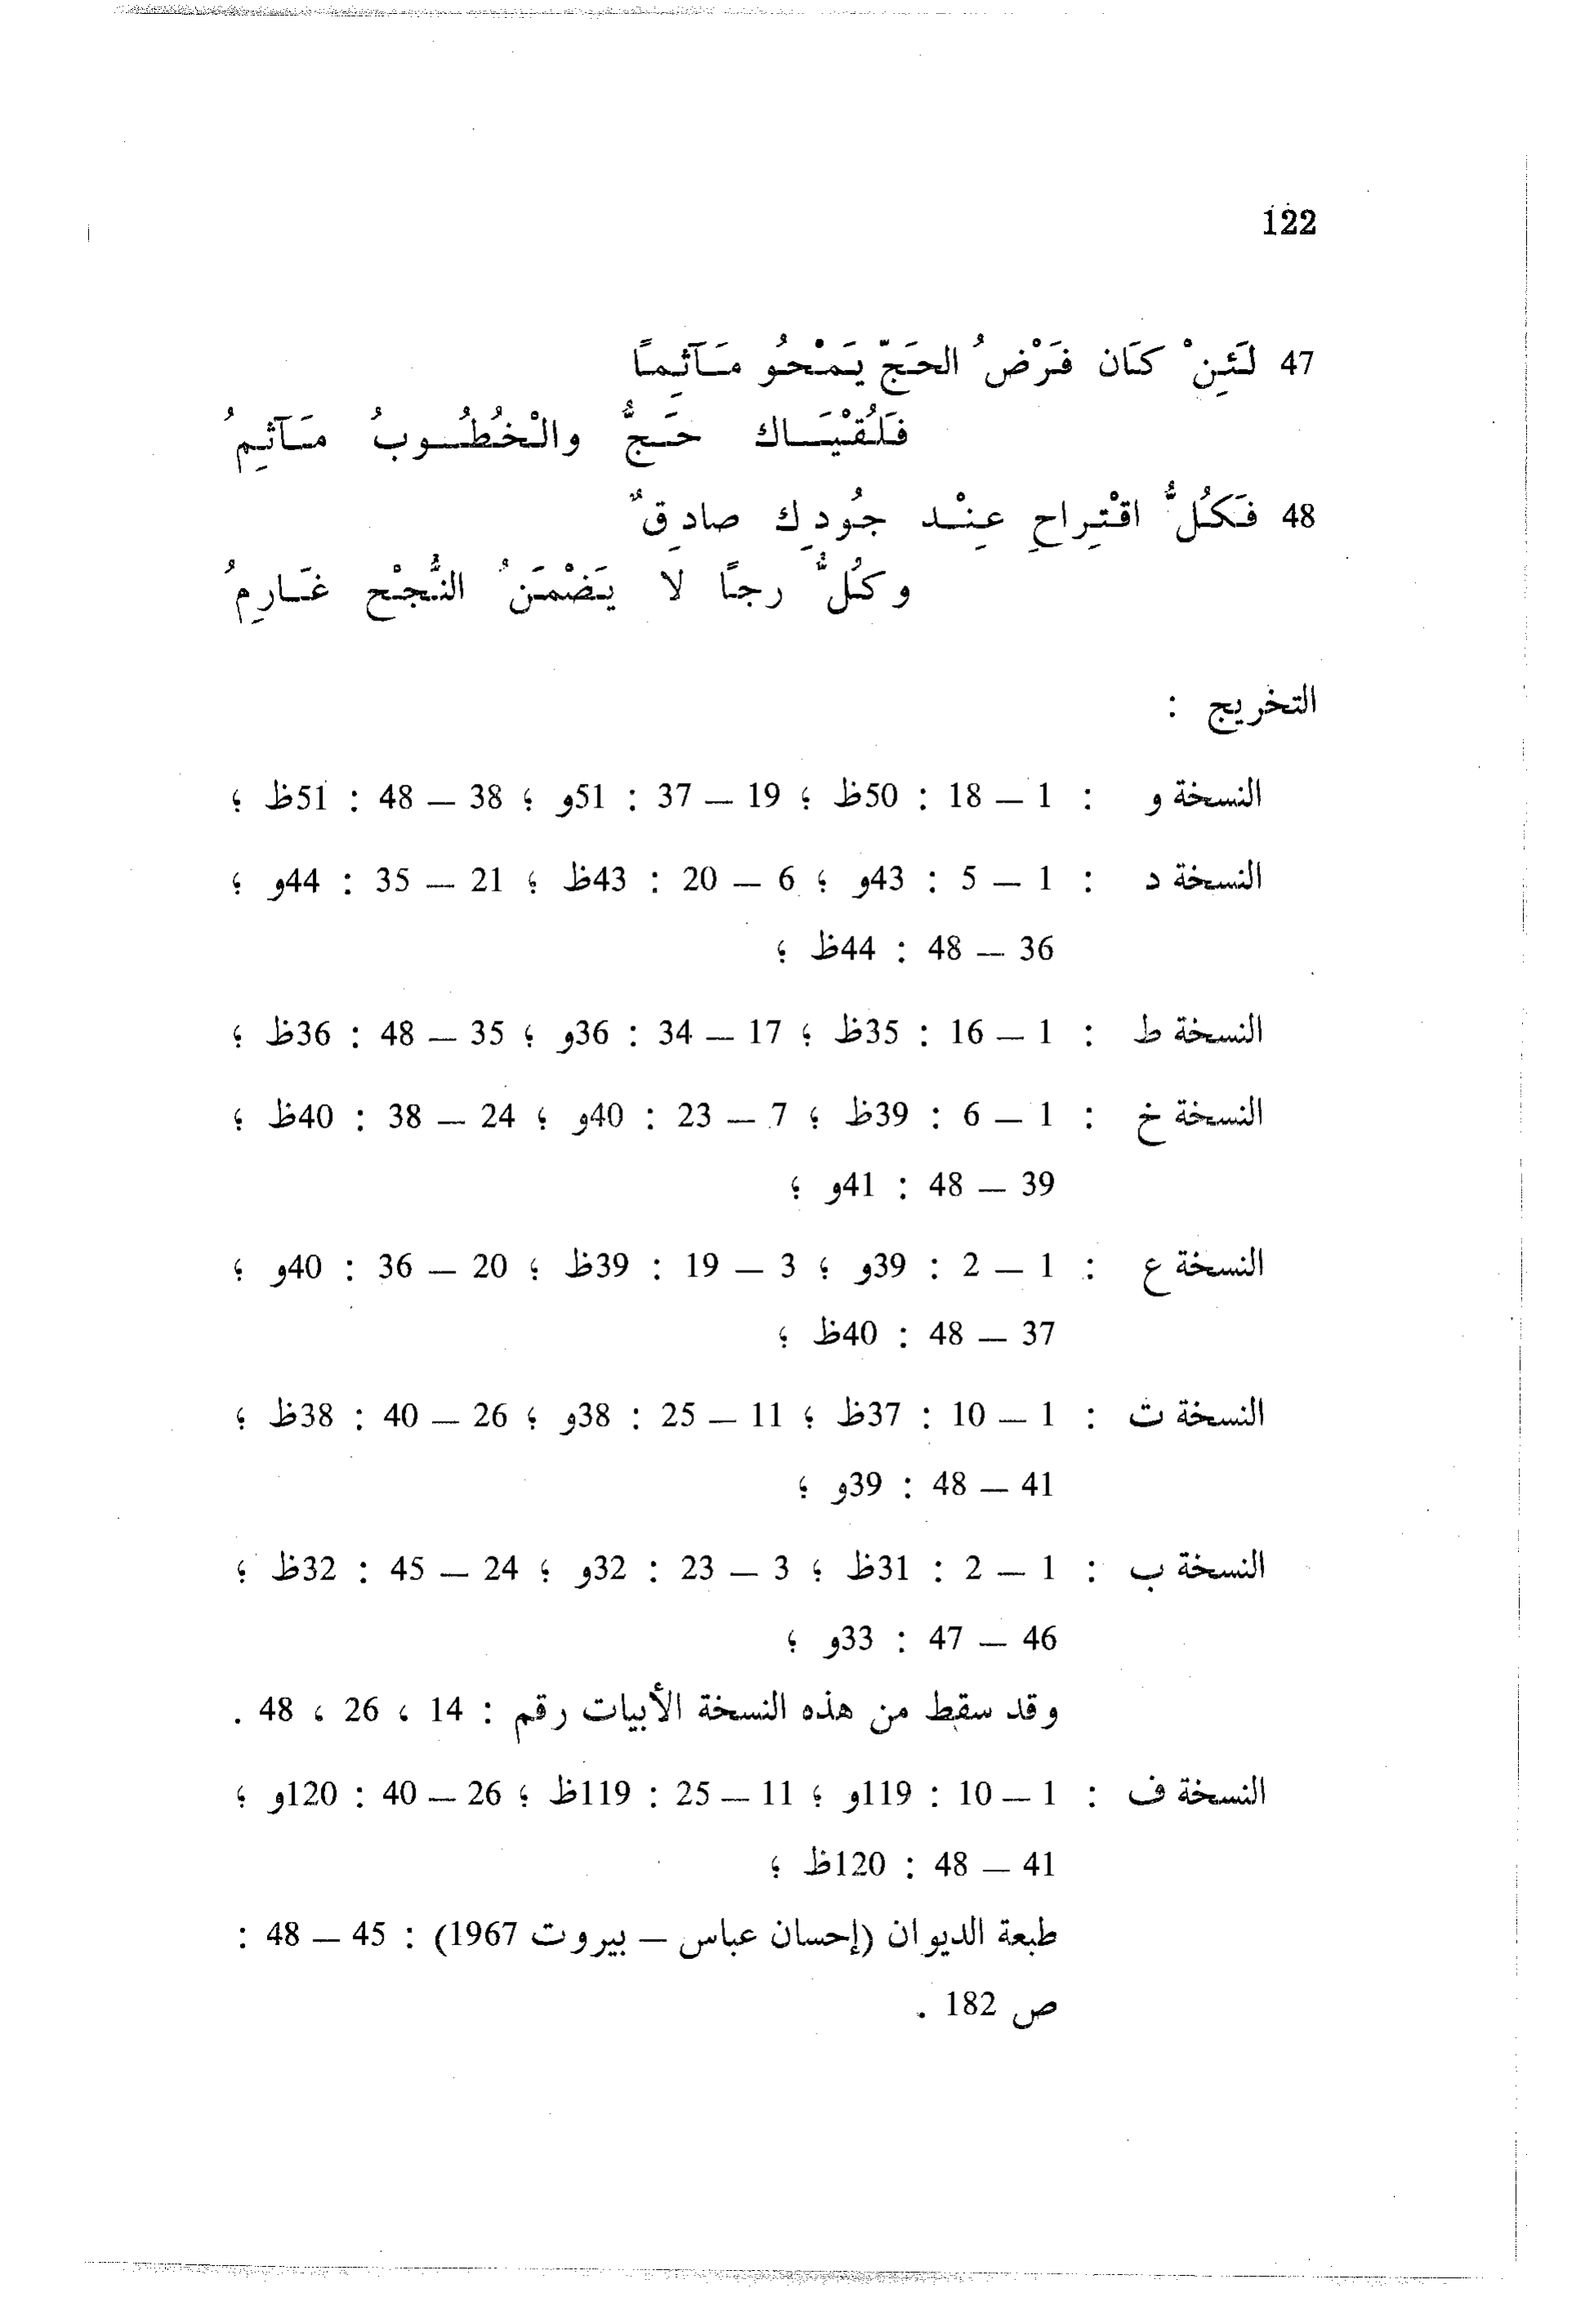 122
47 لَئِنْ كَان فَرْضُ الحَجّ يَمْحُو مَآثِماً
فَلُقْيَاك حَجٌّ والْخُطُوبُ مَآثِمُ
48 فَكُلُّ اقْتِراحٍ عِنْد جُودِك صادِقٌ
وكُلُّ رجاً لا يَضْمَنُ النُّجْح غَارِمُ
التخريج :
النسخة و : 1 — 18 : 50ظ ؛ 19 — 37 : 51و ؛ 38 — 48 : 51ظ ؛
النسخة د : 1 — 5 : 43و ؛ 6 — 20 : 43ظ ؛ 21 — 35 : 44و ؛
36 — 48 : 44ظ ؛
النسخة ط : 1 — 16 : 35ظ ؛ 17 — 34 : 36و ؛ 35 — 48 : 36ظ ؛
النسخة خ : 1 — 6 : 39ظ ؛ 7 — 23 : 40و ؛ 24 — 38 : 40ظ ؛
39 — 48 : 41و ؛
النسخة ع : 1 — 2 : 39و ؛ 3 — 19 : 39ظ ؛ 20 — 36 : 40و ؛
37 — 48 : 40ظ ؛
النسخة ت : 1 — 10 : 37ظ ؛ 11 — 25 : 38و ؛ 26 — 40 : 38ظ ؛
41 — 48 : 39و ؛
النسخة ب : 1 — 2 : 31ظ ؛ 3 — 23 : 32و ؛ 24 — 45 : 32ظ ؛
46 — 47 : 33و ؛
وقد سقط من هذه النسخة الأبيات رقم : 14 ، 26 ، 48 .
النسخة ف : 1 — 10 : 119و ؛ 11 — 25 : 119ظ ؛ 26 — 40 : 120و ؛
41 — 48 : 120ظ ؛
طبعة الديوان (إحسان عباس — بيروت 1967) : 45 — 48 :
ص 182 .